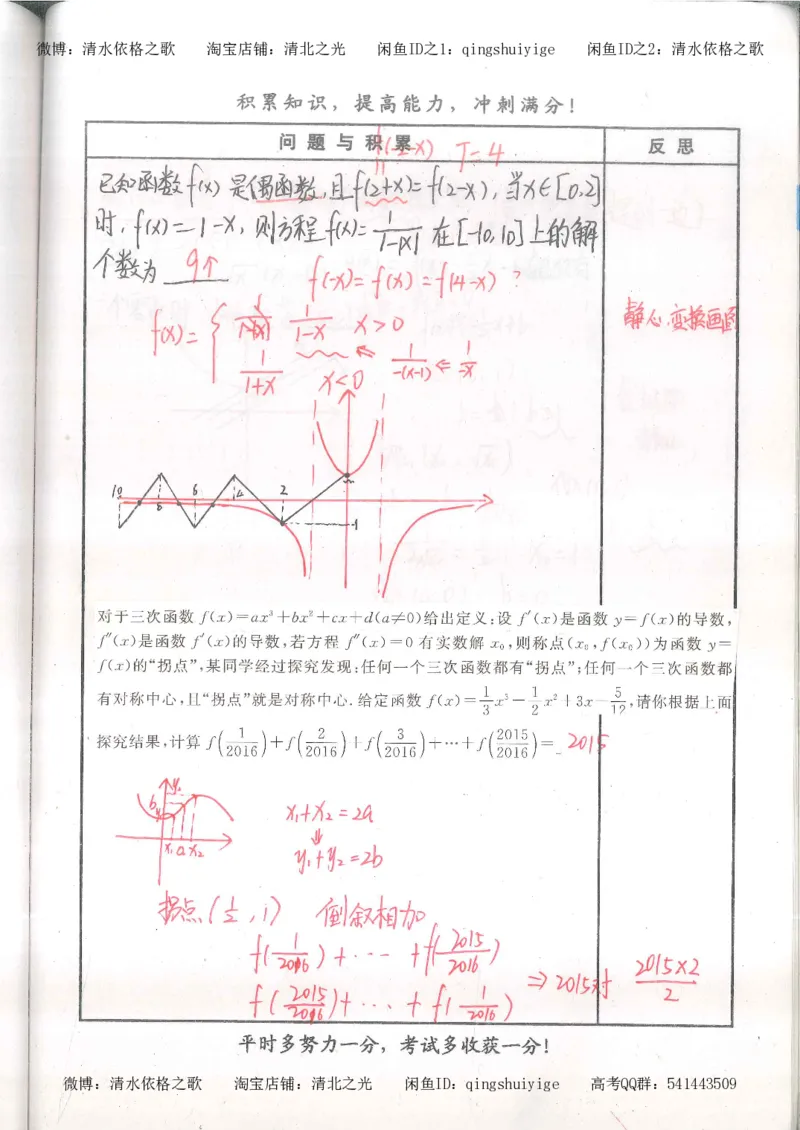 微博：清水依格之歌 淘宝店铺：清北之光 闲鱼ID之1：qingshuiyige 闲鱼ID之2：清水依格之歌
积累知识，提高能力，冲刺满分！
问题与积累 反思
f(2-x) T=4
已知函数f(x)是偶函数,且f(2+x)=f(2-x),当x∈[0,2]
时,f(x)=1-x,则方程f(x)=1/(1-|x|)在[-10,10]上的解
个数为 9个
f(-x)=f(x)=f(4-x)?
静心.变换画图
f(x)={ 1/(1-x) x>0
1/(1+x) x<0 1/(-(x-1)) ⇐ 1/(-x)
10 8 6 4 2 -1
对于三次函数 f(x)=ax³+bx²+cx+d(a≠0)给出定义:设 f′(x)是函数 y=f(x)的导数,
f″(x)是函数 f′(x)的导数,若方程 f″(x)=0 有实数解 x₀,则称点(x₀,f(x₀))为函数 y=
f(x)的“拐点”,某同学经过探究发现:任何一个三次函数都有“拐点”;任何一个三次函数都
有对称中心,且“拐点”就是对称中心.给定函数 f(x)=1/3x³-1/2x²+3x-5/12,请你根据上面
探究结果,计算 f(1/2016)+f(2/2016)+f(3/2016)+…+f(2015/2016)= 2015
b y₁
x₁ a x₂
x₁+x₂=2a
⇓
y₁+y₂=2b
拐点(1/2,1) 倒叙相加
f(1/2016)+…+f(2015/2016)
f(2015/2016)+…+f(1/2016) ⇒2015对 2015×2/2
平时多努力一分，考试多收获一分！
微博：清水依格之歌 淘宝店铺：清北之光 闲鱼ID：qingshuiyige 高考QQ群：541443509